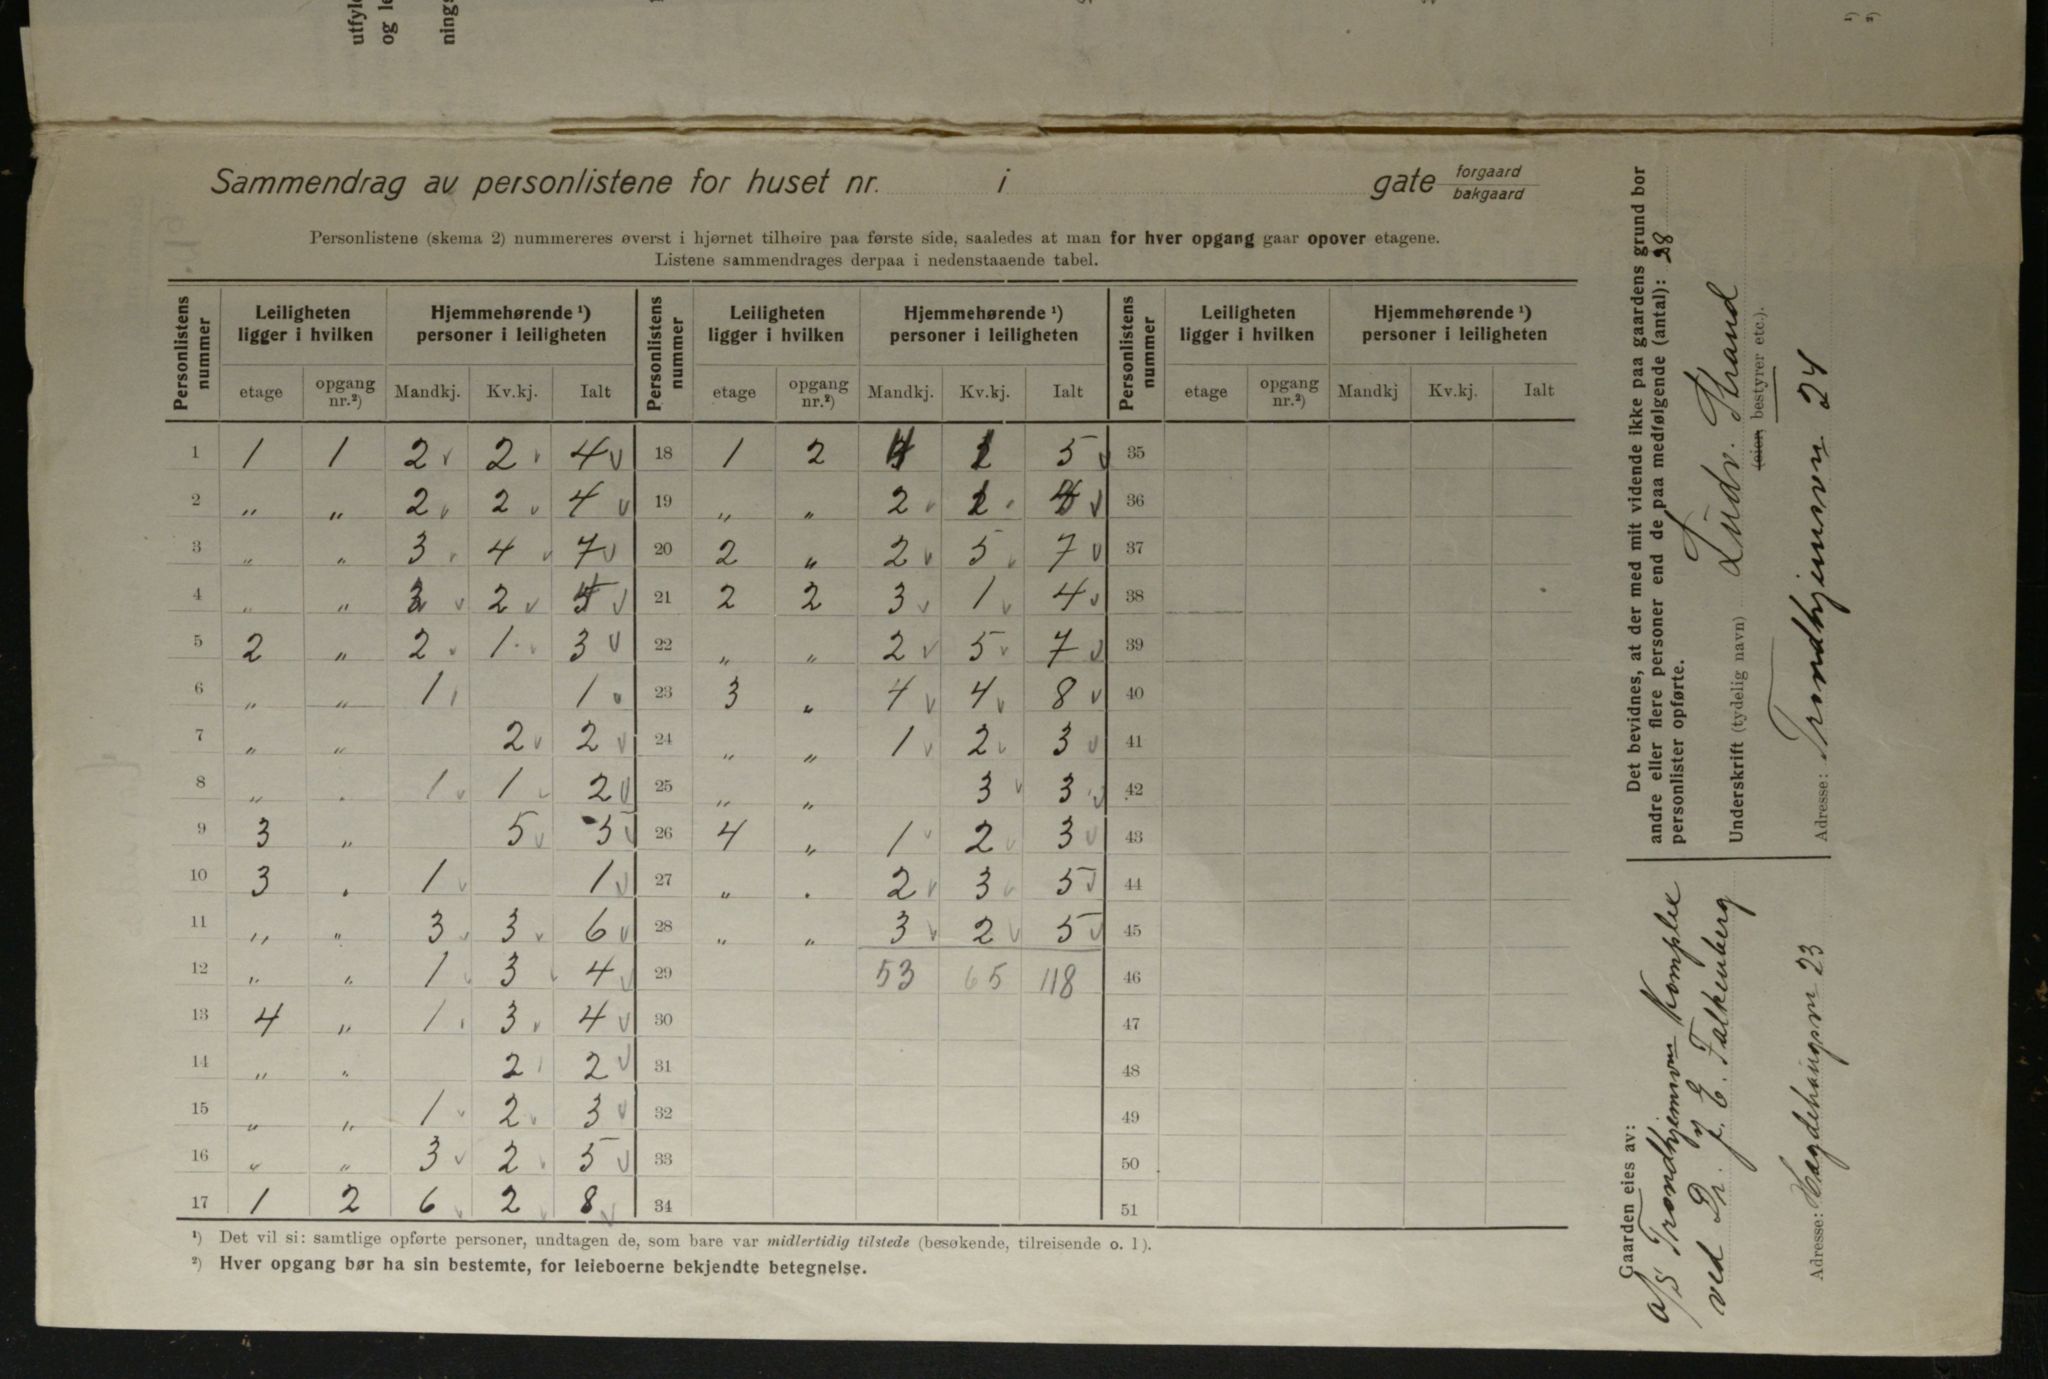 utfyl
og le
nings
Sammendrag av personlistene for huset nr. i gate forgaard
bakgaard
Personlistene (skema 2) nummereres øverst i hjørnet tilhøire paa første side, saaledes at man for hver opgang gaar opover etagene.
Listene sammendrages derpaa i nedenstaaende tabel.
Personlistens nummer | Leiligheten ligger i hvilken | Hjemmehørende ¹) personer i leiligheten | Personlistens nummer | Leiligheten ligger i hvilken | Hjemmehørende ¹) personer i leiligheten | Personlistens nummer | Leiligheten ligger i hvilken | Hjemmehørende ¹) personer i leiligheten
etage | opgang nr.²) | Mandkj. | Kv.kj. | Ialt | etage | opgang nr.²) | Mandkj. | Kv.kj. | Ialt | etage | opgang nr.²) | Mandkj | Kv.kj. | Ialt
1 1 1 2 2 4 18 1 2 5 35
2 " " 2 2 4 19 " " 2 36
3 " " 3 4 7 20 2 " 2 5 7 37
4 " " 2 21 2 2 3 1 4 38
5 2 " 2 1 3 22 " " 2 5 7 39
6 " " 1 1 23 3 " 4 4 8 40
7 " " 2 2 24 " " 1 2 3 41
8 " " 1 1 2 25 " " 3 3 42
9 3 " 5 5 26 4 " 1 2 3 43
10 3 " 1 1 27 " " 2 3 5 44
11 " " 3 3 6 28 " " 3 2 5 45
12 " " 1 3 4 29 53 65 118 46
13 4 " 1 3 4 30 47
14 " " 2 2 31 48
15 " " 1 2 3 32 49
16 " " 3 2 5 33 50
17 1 2 6 2 8 34 51
¹) Det vil si: samtlige opførte personer, undtagen de, som bare var midlertidig tilstede (besøkende, tilreisende o. l).
²) Hver opgang bør ha sin bestemte, for leieboerne bekjendte betegnelse.
Det bevidnes, at der med mit vidende ikke paa gaardens grund bor
andre eller flere personer end de paa medfølgende (antal): 28
personlister opførte.
Underskrift (tydelig navn) Ludv. Strand
(eier, bestyrer etc.).
Adresse: Trondhjemsvn 24
Gaarden eies av:
A/S Trondhjemsvns Komplex
ved Dr. J. E. Falkenberg
Adresse: Hægdehaugsvn 23